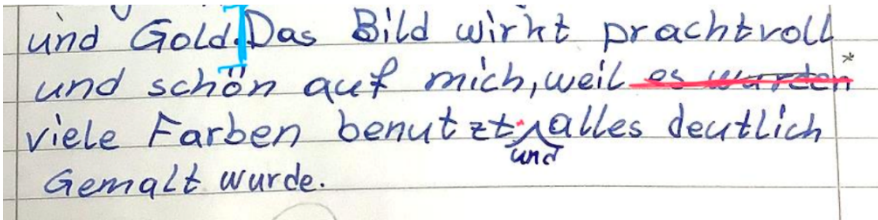 und Gold. Das Bild wirkt prachtvoll
und schön auf mich, weil es wurden *
viele Farben benutzt und alles deutlich
Gemalt wurde.